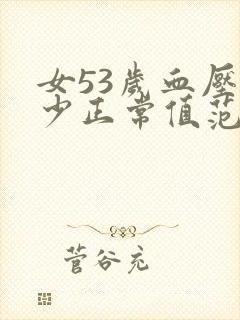 女53歲血壓
少正常值范
菅谷充